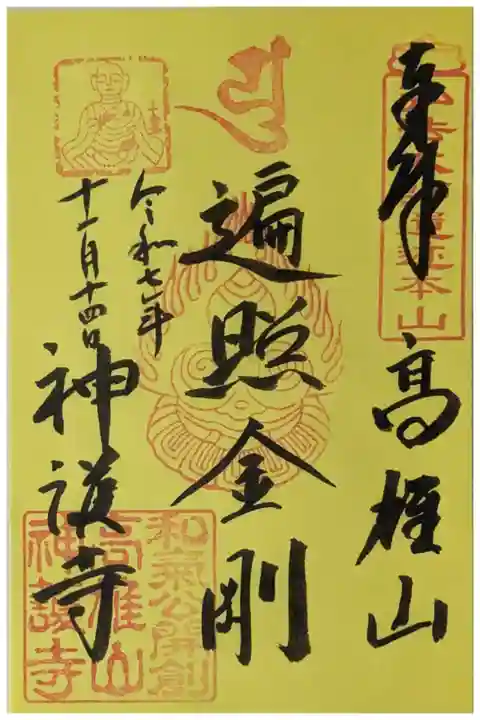 奉拝
高雄山
弘法大師霊蹟本山
遍照金剛
令和七年
十一月十四日
神護寺
和氣公開創
高雄山
神護寺